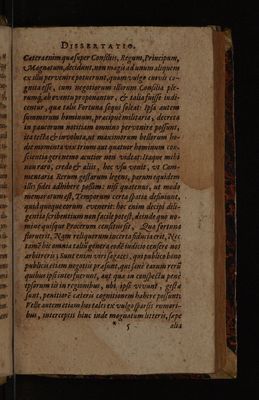 DISSERTATIO.
Cæteraenim quæ super Consiliis, Regum, Principum,
& Magnatum, decidunt, non magis ad unum aliquem
ex illis pervenire potuerunt, quam vulgo curvis co-
gnita esse, cum negotiorum illorum Consilia ple-
rumq; ab eventu proponantur, & talia fuisse indi-
centur, quæ talis Fortuna sequi soleat: Ipsa autem
summorum hominum, præcipuè militaria, decreta
in paucorum notitiam omnino pervenire possunt,
ita tecta & involuta, ut maximorum bellorum ho-
die momenta vix trium aut quatuor hominum con-
scientia geri nemo acutior non videat: Itaque mihi
non raro, credo & aliis, hoc usu venit, ut Com-
mentariis Rerum gestarum legens, parum equidem
illis fidei adhibere possim: nisi quatenus, ut modo
memoratum est, Temporum certa spatia
quando quæque evenerit: hoc enim decipi dili-
gentia scribentium non facile potest, deinde quo no-
mine quisque Procerum censitus sit, Qua fortuna
floruerit, Nam reliquorum incerta fiducia erit, Nec
tamē hic omnia talia genera eodē iudicio censere nos
arbitreris; Sunt enim veri sagaces, qui publico bono
publicis etiam negotiis præsunt, quos sanè earum rerū
quibus ipsi interfuerunt, aut quæ in conspectu penè
ipsarum sit in regionibus, ubi ipsi vivunt, gesta
sunt, penitiorē cæteris cognitionem habere possunt:
Velle autem etiam has tales ex vulgo sparsis rumori-
bus, interceptis hinc inde magnatum litteris, sæpe
* 5 alia